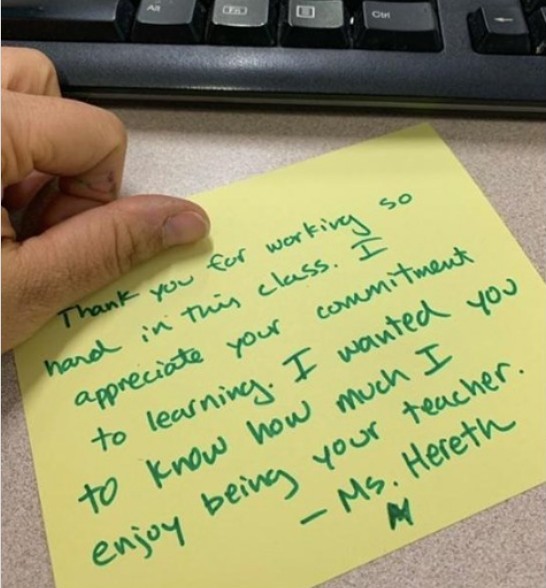 Alt
Fn
Ctrl
Thank you for working so
hard in this class. I
appreciate your commitment
to learning. I wanted you
to know how much I
enjoy being your teacher.
- Ms. Hereth